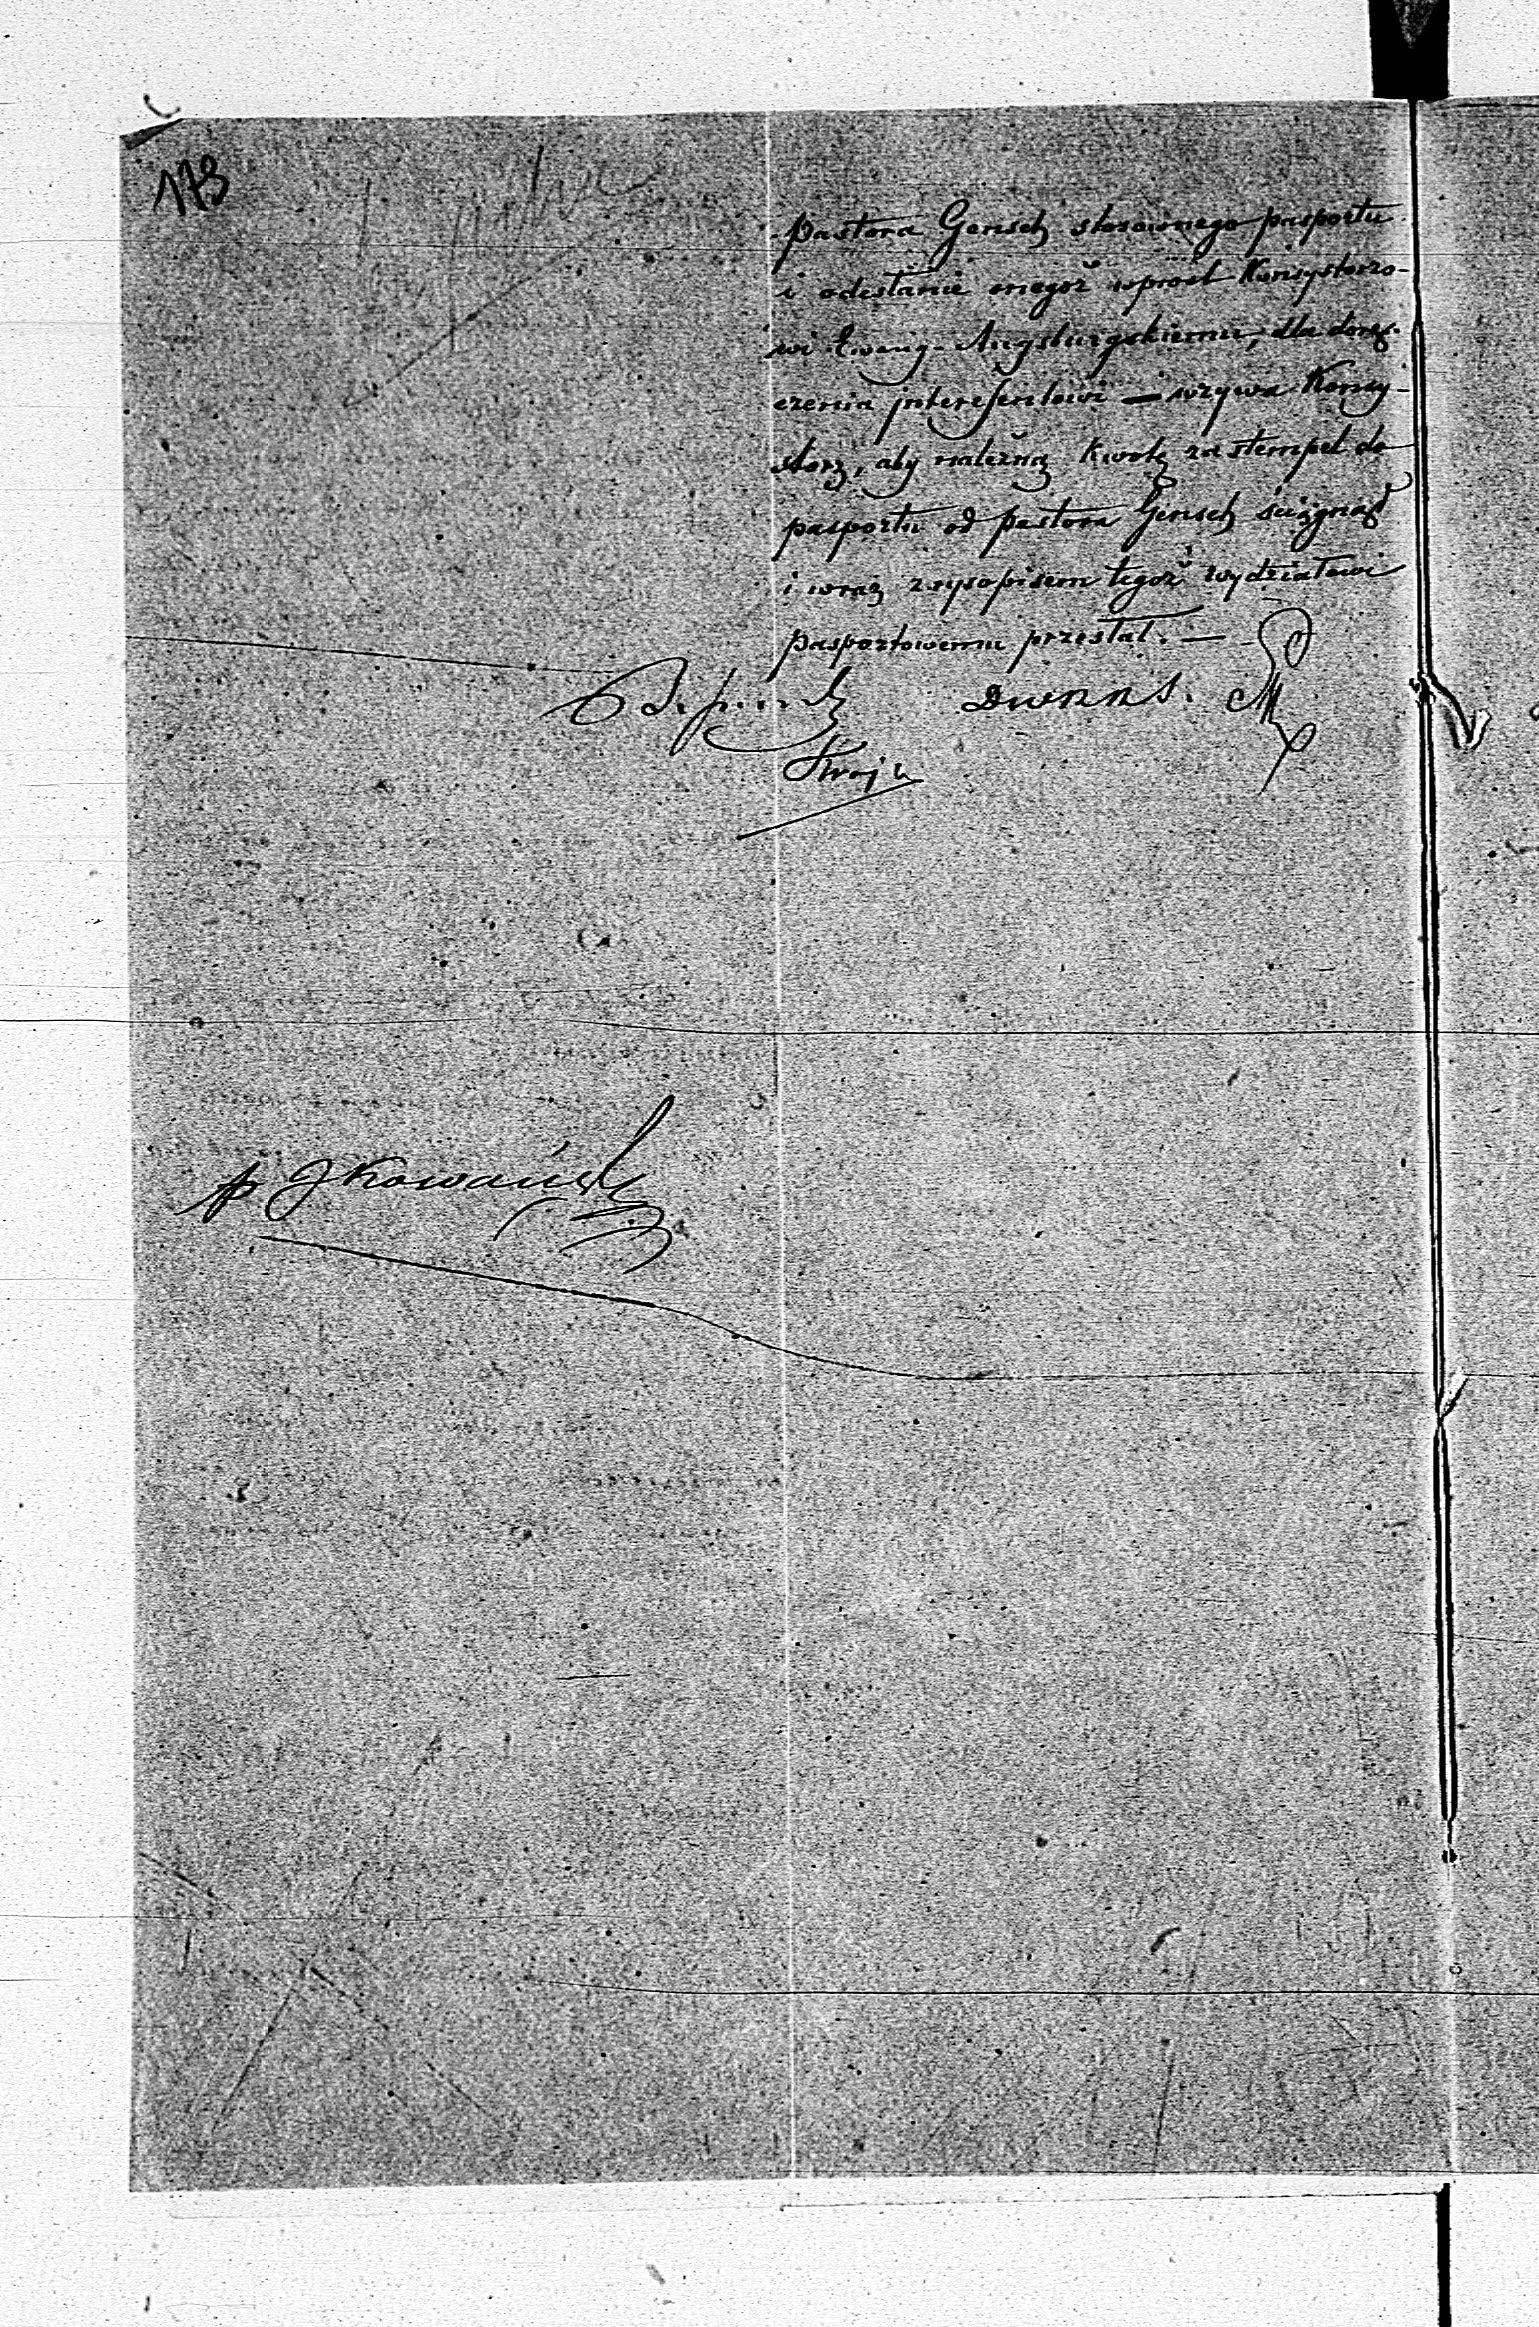 173
Pastora Gensch stosownego pasportu
i odesłanie onegoż wprost Konsystorzo-
wi Ewang-Augsburgskiemu, dla dorę-
czenia interesentowi — wzywa Konsy-
storz, aby należną kwotę za stempel do
pasportu od pastora Gensch ściągnął
i wraz z rysopisem tegoż wydziałowi
paszportowemu przesłał. —